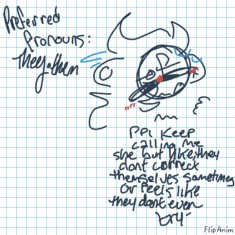 Preferred
Pronouns:
They/them
ppl keep
calling me
she but like, they
dont correct
themselves sometimes
Or feels like
they dont even
try-
FlipAnim